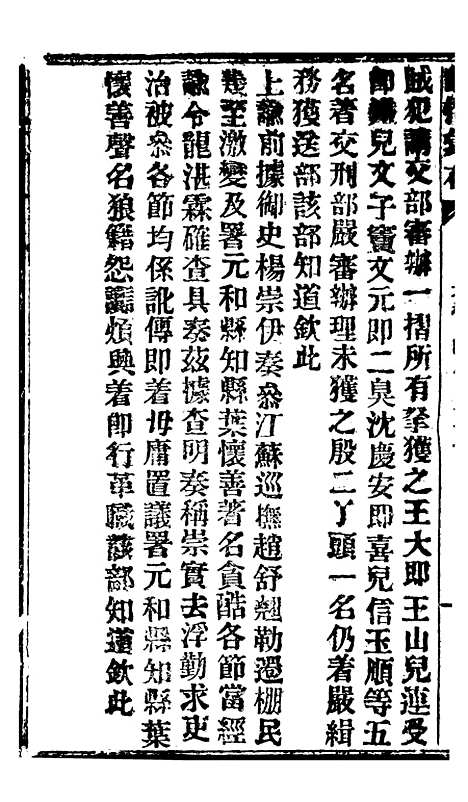 賊犯請交部審辦一摺所有拏獲之王大即王山兒連受
即鐵兒文子寶文元即二臭沈慶安即喜兒信玉順等五
名著交刑部嚴審辦理未獲之殷二丫頭一名仍着嚴緝
務獲送部該部知道欽此
上諭前據御史楊崇伊奏叅江蘇巡撫趙舒翹勒遷棚民
幾至激變及署元和縣知縣葉懷善著名貪酷各節當經
諭令龍湛霖確查具奏茲據查明奏稱崇實去浮勤求吏
治被叅各節均係訛傳即着毋庸置議署元和縣知縣葉
懷善聲名狼籍怨讟煩興着即行革職該部知道欽此